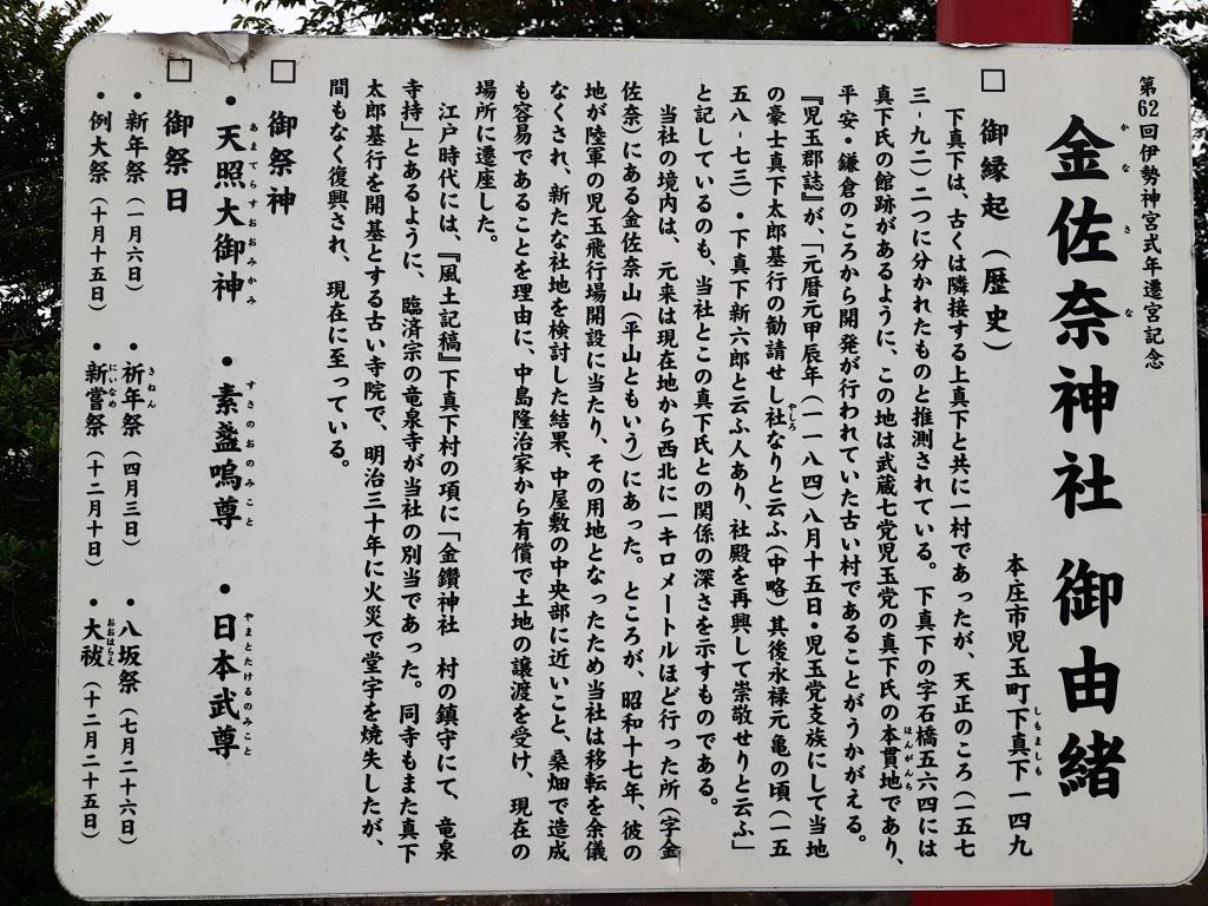 第62回伊勢神宮式年遷宮記念
金佐奈神社 御由緒
本庄市児玉町下真下一四九
□ 御縁起(歴史)
下真下は、古くは隣接する上真下と共に一村であったが、天正のころ(一五七
三-九二)二つに分かれたものと推測されている。下真下の字石橋五六四には
真下氏の館跡があるように、この地は武蔵七党児玉党の真下氏の本貫地であり、
平安・鎌倉のころから開発が行われていた古い村であることがうかがえる。
『児玉郡誌』が、「元暦元甲辰年(一一八四)八月十五日・児玉党支族にして当地
の豪士真下太郎基行の勧請せし社なりと云ふ(中略)其後永禄元亀の頃(一五
五八-七三)・下真下新六郎と云ふ人あり、社殿を再興して崇敬せりと云ふ」
と記しているのも、当社とこの真下氏との関係の深さを示すものである。
当社の境内は、元来は現在地から西北に一キロメートルほど行った所(字金
佐奈)にある金佐奈山(平山ともいう)にあった。ところが、昭和十七年、彼の
地が陸軍の児玉飛行場開設に当たり、その用地となったため当社は移転を余儀
なくされ、新たな社地を検討した結果、中屋敷の中央部に近いこと、桑畑で造成
も容易であることを理由に、中島隆治家から有償で土地の譲渡を受け、現在の
場所に遷座した。
江戸時代には、『風土記稿』下真下村の項に「金鑚神社 村の鎮守にて、竜泉
寺持」とあるように、臨済宗の竜泉寺が当社の別当であった。同寺もまた真下
太郎基行を開基とする古い寺院で、明治三十年に火災で堂宇を焼失したが、
間もなく復興され、現在に至っている。
□ 御祭神
・天照大御神 ・素盞嗚尊 ・日本武尊
□ 御祭日
・新年祭(一月六日) ・祈年祭(四月三日) ・八坂祭(七月二十六日)
・例大祭(十月十五日) ・新嘗祭(十二月十日) ・大祓(十二月二十五日)